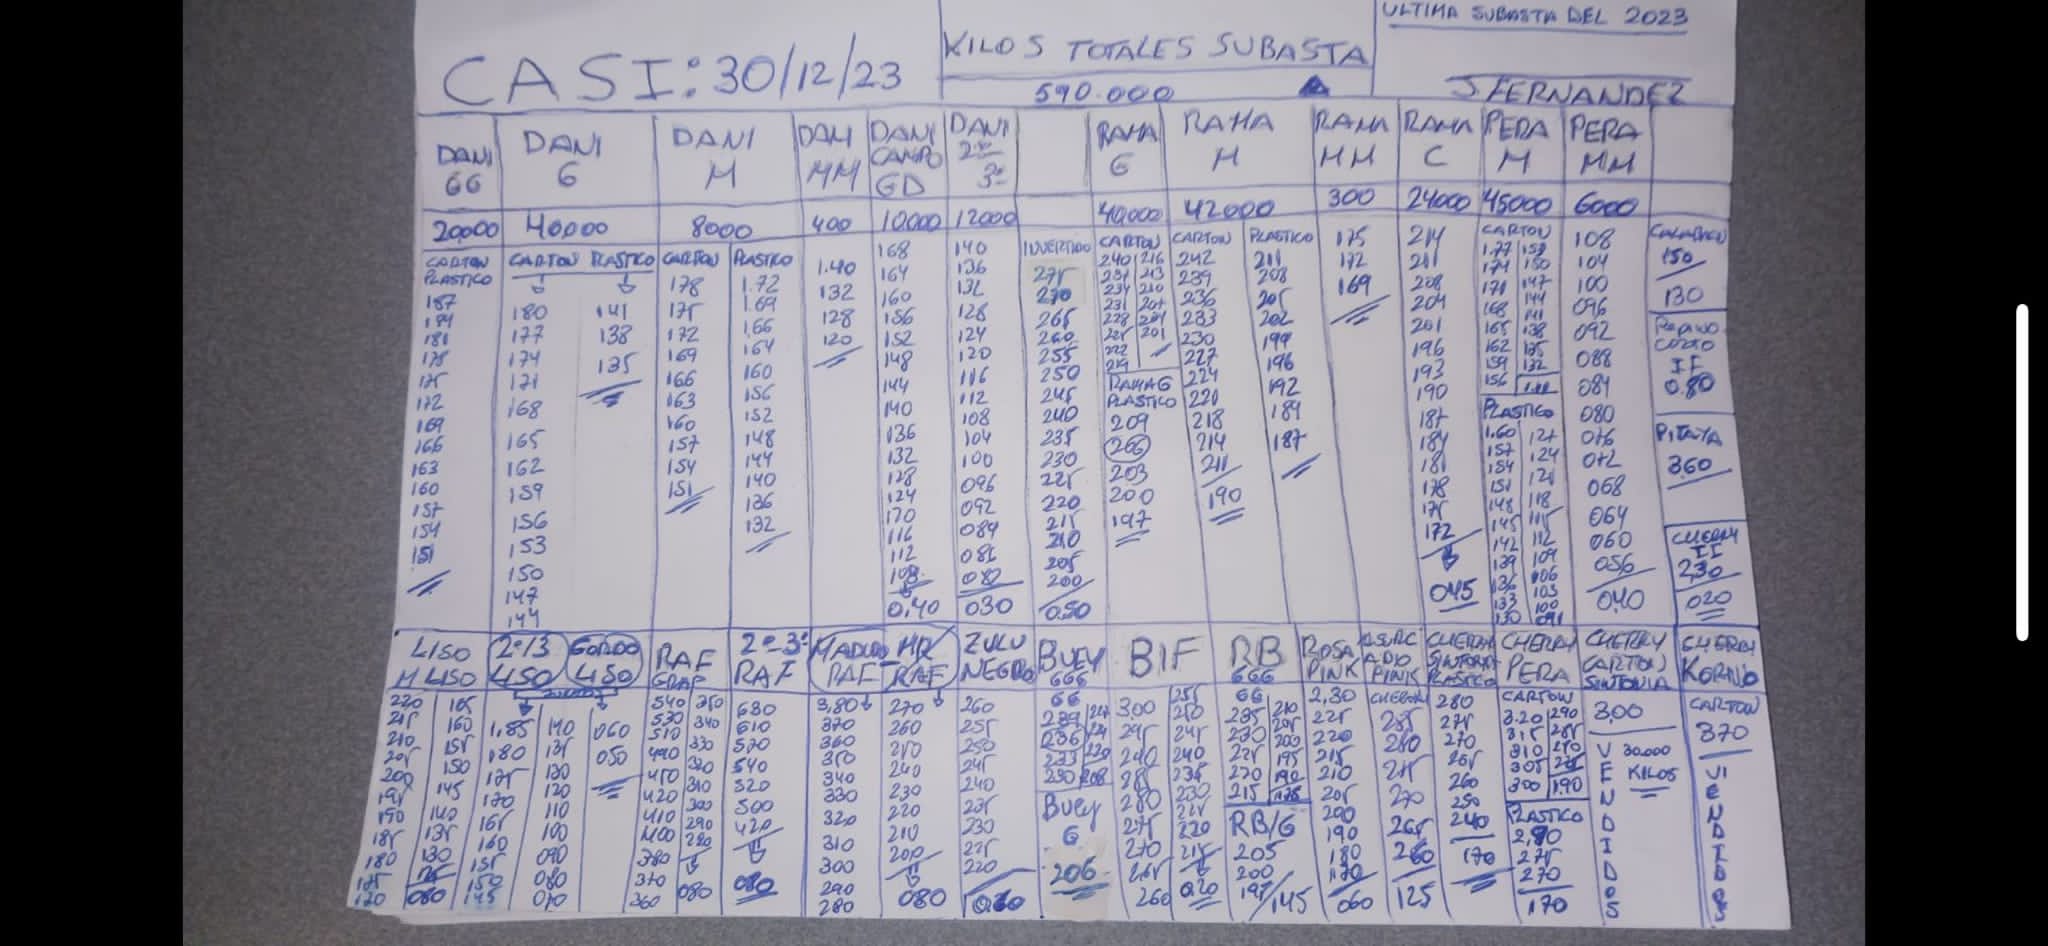 ULTIMA SUBASTA DEL 2023
CASI: 30/12/23
KILOS TOTALES SUBASTA
590.000
J FERNANDEZ
DANI GG
DANI G
DANI M
DANI MM
DANI CAMPO GD
DANI 2ª 3ª
RAMA G
RAMA M
RAMA MM
RAMA C
PERA M
PERA MM
20000 40000 8000 400 10000 12000 40000 42000 300 24000 45000 6000
CARTON PLASTICO
187
184
181
178
175
172
169
166
163
160
157
154
151
CARTON
180
177
174
171
168
165
162
159
156
153
150
147
144
PLASTICO
141
138
135
CARTON
178
175
172
169
166
163
160
157
154
151
PLASTICO
1.72
1.69
1.66
164
160
156
152
148
144
140
136
132
1.40
132
128
120
168
164
160
156
152
148
144
140
136
132
128
124
120
116
112
108
0,40
140
136
132
128
124
120
116
112
108
104
100
096
092
084
030
INVERTIDO
275
270
265
260
255
250
245
240
235
230
225
220
215
210
205
200
0.50
CARTON
240 216
RAMA G
PLASTICO
209
206
203
200
197
CARTON
242
239
236
233
230
227
224
221
218
214
211
190
PLASTICO
211
208
205
202
199
196
192
189
187
175
172
169
214
211
208
204
201
196
193
190
187
184
181
178
175
172
045
CARTON
1.77 153
174 150
171 147
168 144
165 138
162 135
159 132
156
PLASTICO
1.60 127
157 124
154 121
151 118
148 115
145 112
142 109
139 106
136 103
133 100
130 091
108
104
100
096
092
088
084
080
076
072
068
064
060
056
040
CALABACIN
150
130
PEPINO CORTO
II
0.80
PITAYA
3.60
CHERRY
II
2,30
020
LISO
M LISO
2ª/3 LISO
GORDO LISO
RAF GRAF
2ª-3ª RAF
MADURO RAF
MR/ RAF
ZULU NEGRO
BUEY GGG
BIF
RB GGG
ROSA PINK
CHERRY SINTONIA PLASTICO
CHERRY PERA
CHERRY CARTON SINTONIA
CHERRY KORINO
220 165
215 160
210 155
205 150
200 145
195 140
190 135
185 130
180
175 080
170
1,85 140
180 135
175 130
170 120
165 110
160 100
155 090
150 080
145 070
060
050
540 350
530 340
510 330
490 320
450 310
420 300
410 290
400 280
380
370 080
360
630
610
570
540
520
500
420
080
3,80
370
360
350
340
330
320
310
300
290
280
270
260
250
240
230
220
210
200
080
260
255
250
245
240
235
230
225
220
GG
239
236
233
230
BUEY
G
206
3,00
295
290
285
280
275
270
265
260
255
250
245
240
235
230
225
220
215
020
GG
235 210
230 200
225 195
220 190
215 175
RB/G
205
200
195/145
2,30
225
220
215
210
205
200
190
180
170
060
CHERRY
285
280
275
270
265
260
125
280
275
270
265
260
250
240
170
CARTON
3.20 290
315 285
310 280
305
300 190
PLASTICO
2,80
275
270
170
3,00
30.000
KILOS
VENDIDOS
CARTON
370
VENDIDOS